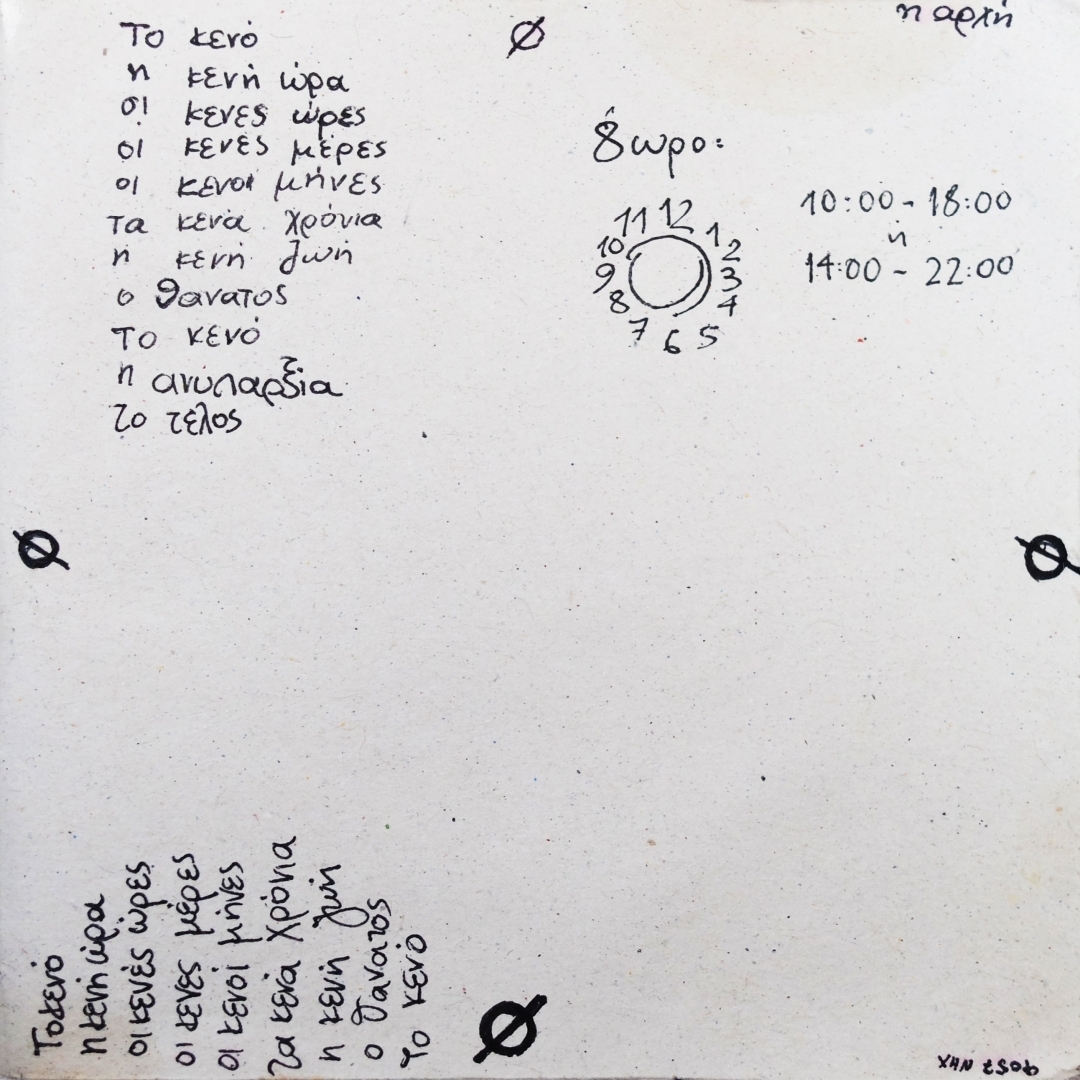 Το κενό
η κενή ώρα
οι κενές ώρες
οι κενές μέρες
οι κενοί μήνες
τα κενά χρόνια
η κενή ζωή
ο θανατος
Το κενό
η ανυπαρξία
το τελος
Ø
η αρχή
8ωρο:
11 12 1
10 2
9 3
8 4
7 6 5
10:00 - 18:00
ή
14:00 - 22:00
Ø
Ø
Το κενό
η κενή ώρα
οι κενές ώρες
οι κενές μέρες
οι κενοί μήνες
τα κενά χρόνια
η κενή ζωή
ο θανατος
το κενό
Ø